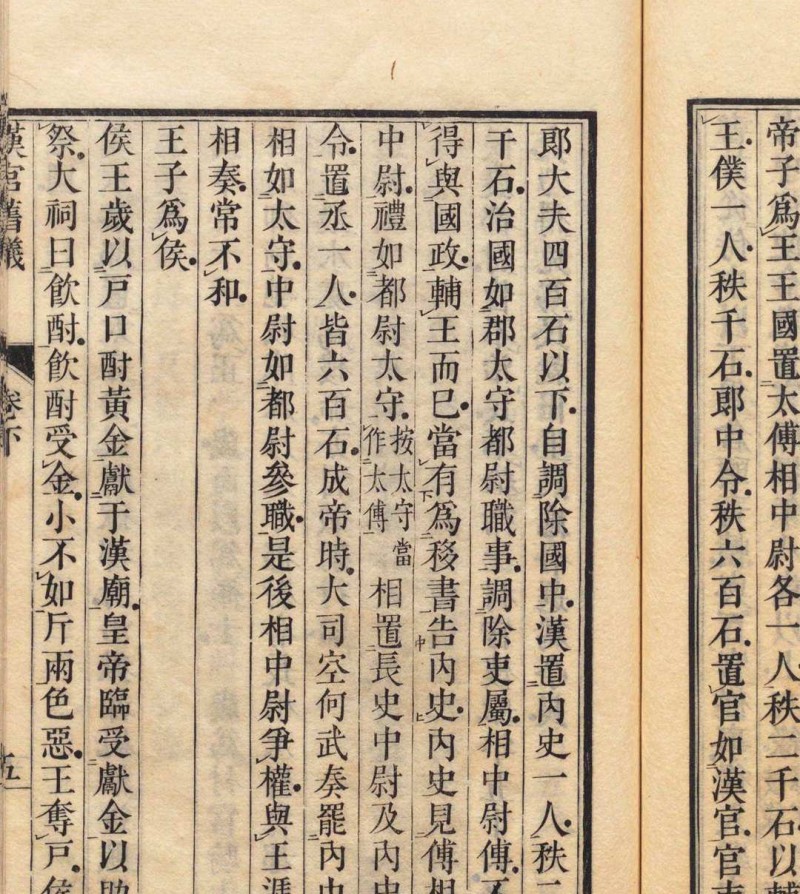 帝子爲王王國置太傅相中尉各一人秩二千石以輔
王僕一人秩千石郎中令秩六百石置官如漢官官吏
郎大夫四百石以下自調除國中漢置內史一人秩二
千石治國如郡太守都尉職事調除吏屬相中尉傅不
得與國政輔王而已當有爲移書告內史內史見傅相
中尉禮如都尉太守按太守當作太傅相置長史中尉及內史
令置丞一人皆六百石成帝時大司空何武奏罷內史
相如太守中尉如都尉參職是後相中尉爭權與王遞
相奏常不和
王子爲侯
侯王歲以戶口酎黃金獻于漢廟皇帝臨受獻金以助
祭大祠曰飲酎飲酎受金小不如斤兩色惡王奪戶侯
漢官舊儀 卷下 五